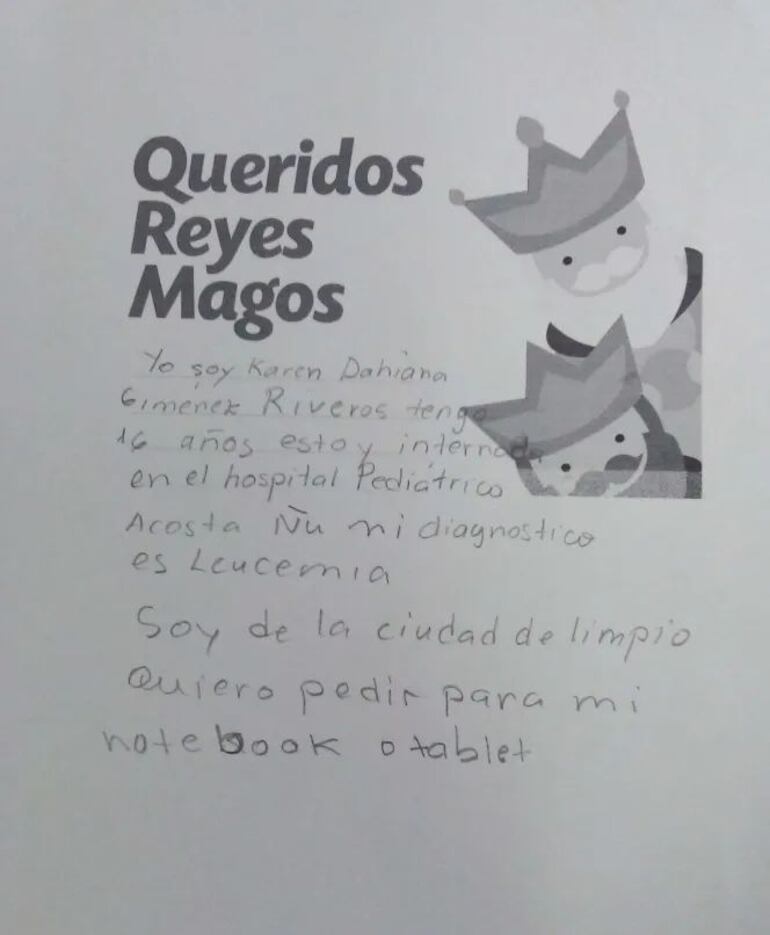 Queridos
Reyes
Magos
Yo soy Karen Dahiana
Gimenez Riveros tengo
16 años estoy internada
en el hospital Pediátrico
Acosta Ñu mi diagnostico
es Leucemia
Soy de la ciudad de limpio
Quiero pedir para mi
notebook o tablet